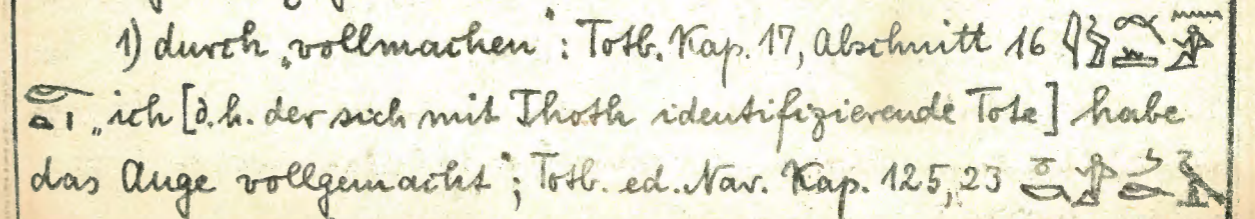 1) durch „vollmachen“: Totb. Kap. 17, Abschnitt 16
„ich [d.h. der sich mit Thoth identifizierende Tote] habe
das Auge vollgemacht“; Totb. ed. Nav. Kap. 125,23